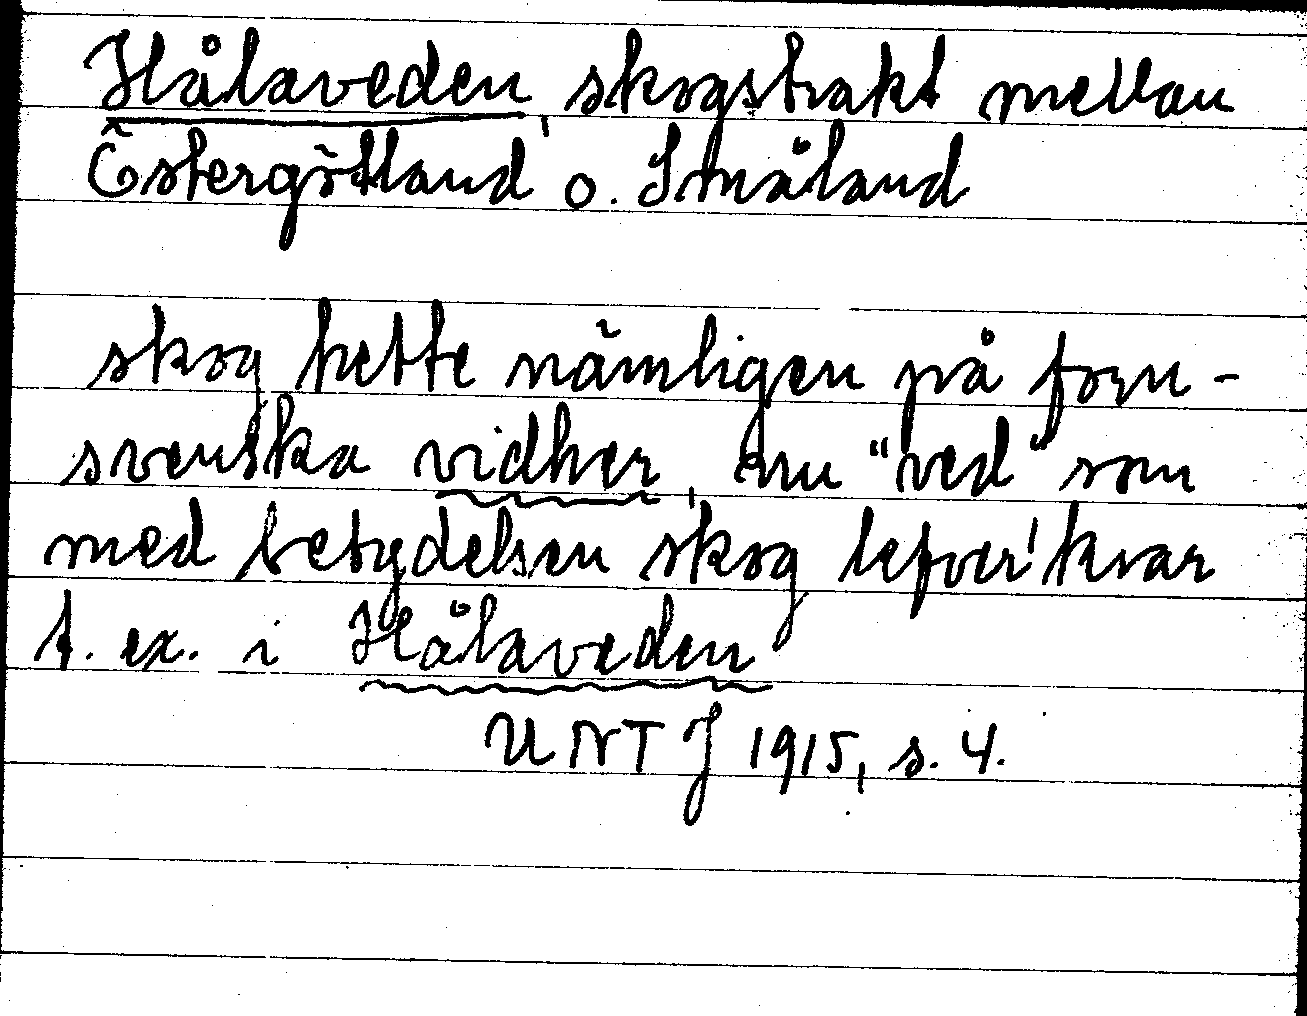 Hålaveden, skogstrakt mellan
Östergötland o. Småland
skog hette nämligen på forn-
svenska vidher, nu "ved" som
med betydelsen skog lefver kvar
t. ex. i Hålaveden
UNT J 1915, s. 4.